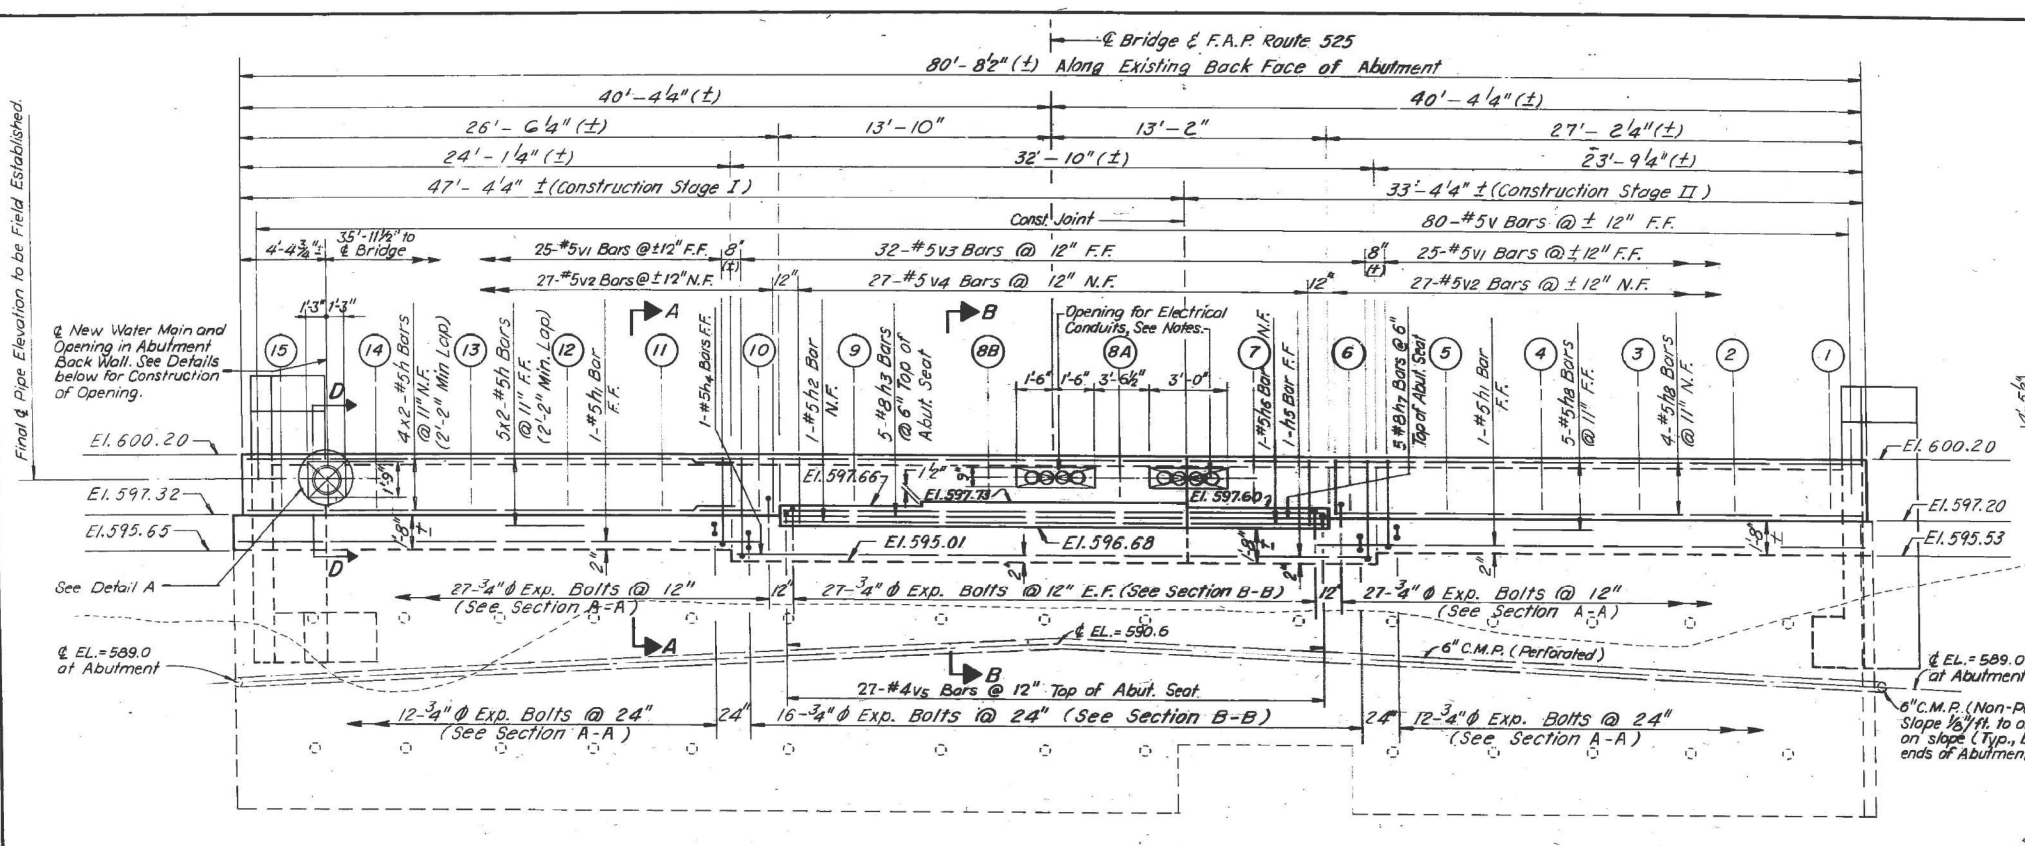 ℄ Bridge & F.A.P. Route 525
80'-8½" (±) Along Existing Back Face of Abutment
40'-4¼" (±)
40'-4¼" (±)
26'-6¼" (±)
13'-10"
13'-2"
27'-2¼" (±)
24'-1¼" (±)
32'-10" (±)
23'-9¼" (±)
47'-4¼" ± (Construction Stage I)
33'-4¼" ± (Construction Stage II)
Const. Joint
80-#5v Bars @ ± 12" F.F.
4'-4¾" ±
35'-11½" to
℄ Bridge
25-#5v1 Bars @ ±12" F.F.
8"
(±)
32-#5v3 Bars @ 12" F.F.
8"
(±)
25-#5v1 Bars @ ±12" F.F.
27-#5v2 Bars @ ±12" N.F.
12"
27-#5v4 Bars @ 12" N.F.
12"
27-#5v2 Bars @ ±12" N.F.
Final ℄ Pipe Elevation to be Field Established.
1'-3" 1'-3"
A
B
Opening for Electrical
Conduits, See Notes.
℄ New Water Main and
Opening in Abutment
Back Wall. See Details
below for Construction
of Opening.
15
14
13
12
11
10
9
8B
8A
7
6
5
4
3
2
1
4x2-#5h Bars
@ 11" N.F.
(2'-2" Min. Lap)
5x2-#5h Bars
@ 11" F.F.
(2'-2" Min. Lap)
1-#5h Bar
F.F.
1-#5h4 Bars F.F.
1-#5h2 Bar
N.F.
5-#8h3 Bars
@ 6" Top of
Abut. Seat
1'-6" 1'-6" 3'-6½" 3'-0"
1-#5h6 Bar N.F.
1-h5 Bar F.F.
5-#8h7 Bars @ 6"
Top of Abut. Seat
1-#5h1 Bar
F.F.
5-#5h8 Bars
@ 11" F.F.
4-#5h8 Bars
@ 11" N.F.
D
El. 600.20
El. 600.20
1'-9"
El. 597.66
1½"
9"
El. 597.73
El. 597.60
El. 597.32
El. 597.20
El. 595.65
1'-8"
±
El. 595.01
El. 596.68
1'-8"
±
1'-8"
±
El. 595.53
2"
2"
2"
2"
D
See Detail A
27-¾" ϕ Exp. Bolts @ 12"
(See Section A-A)
12"
27-¾" ϕ Exp. Bolts @ 12" E.F. (See Section B-B)
12"
27-¾" ϕ Exp. Bolts @ 12"
(See Section A-A)
℄ EL.=590.6
A
℄ EL.=589.0
at Abutment
6" C.M.P. (Perforated)
B
℄ EL.=589.0
at Abutment
27-#4v5 Bars @ 12" Top of Abut. Seat
12-¾" ϕ Exp. Bolts @ 24"
(See Section A-A)
24"
16-¾" ϕ Exp. Bolts @ 24" (See Section B-B)
24"
12-¾" ϕ Exp. Bolts @ 24"
(See Section A-A)
6" C.M.P. (Non-P
Slope ⅛"/ft. to
on slope (Typ.,
ends of Abutmen